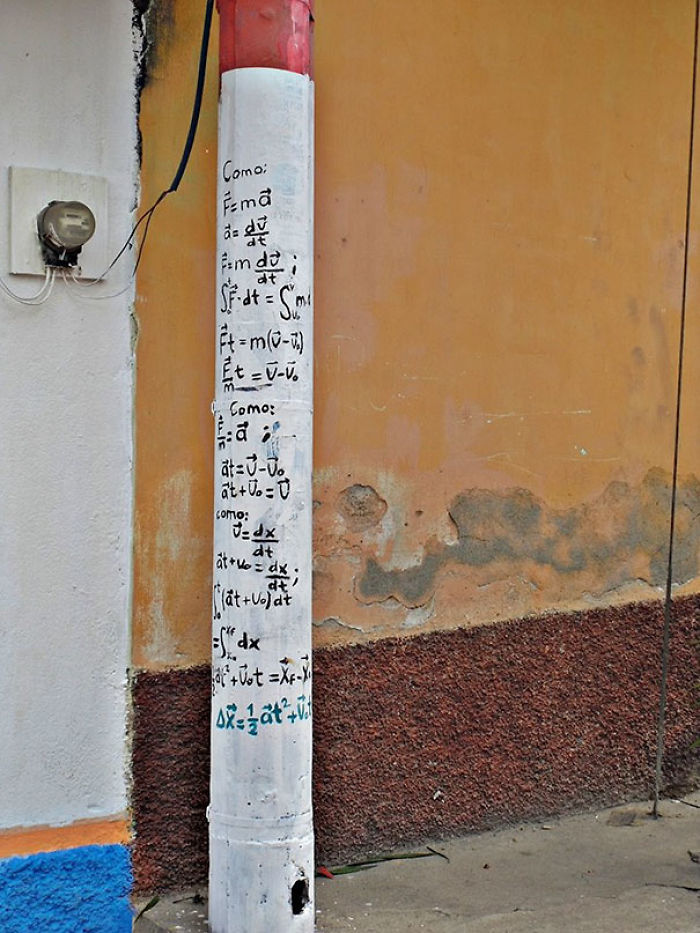 Como:
F⃗=ma⃗
a⃗=dv⃗/dt
F⃗=m dv⃗/dt;
∫F⃗·dt=∫m
F⃗t=m(v⃗-v⃗₀)
F⃗/m t=v⃗-v⃗₀
Como:
F⃗/m=a⃗;
a⃗t=v⃗-v⃗₀
a⃗t+v⃗₀=v⃗
como:
v⃗=dx/dt
a⃗t+v₀=dx/dt;
∫(a⃗t+v₀)dt
=∫dx
a⃗t²+v⃗₀t=x⃗F-x⃗
Δx⃗=½a⃗t²+v⃗₀t